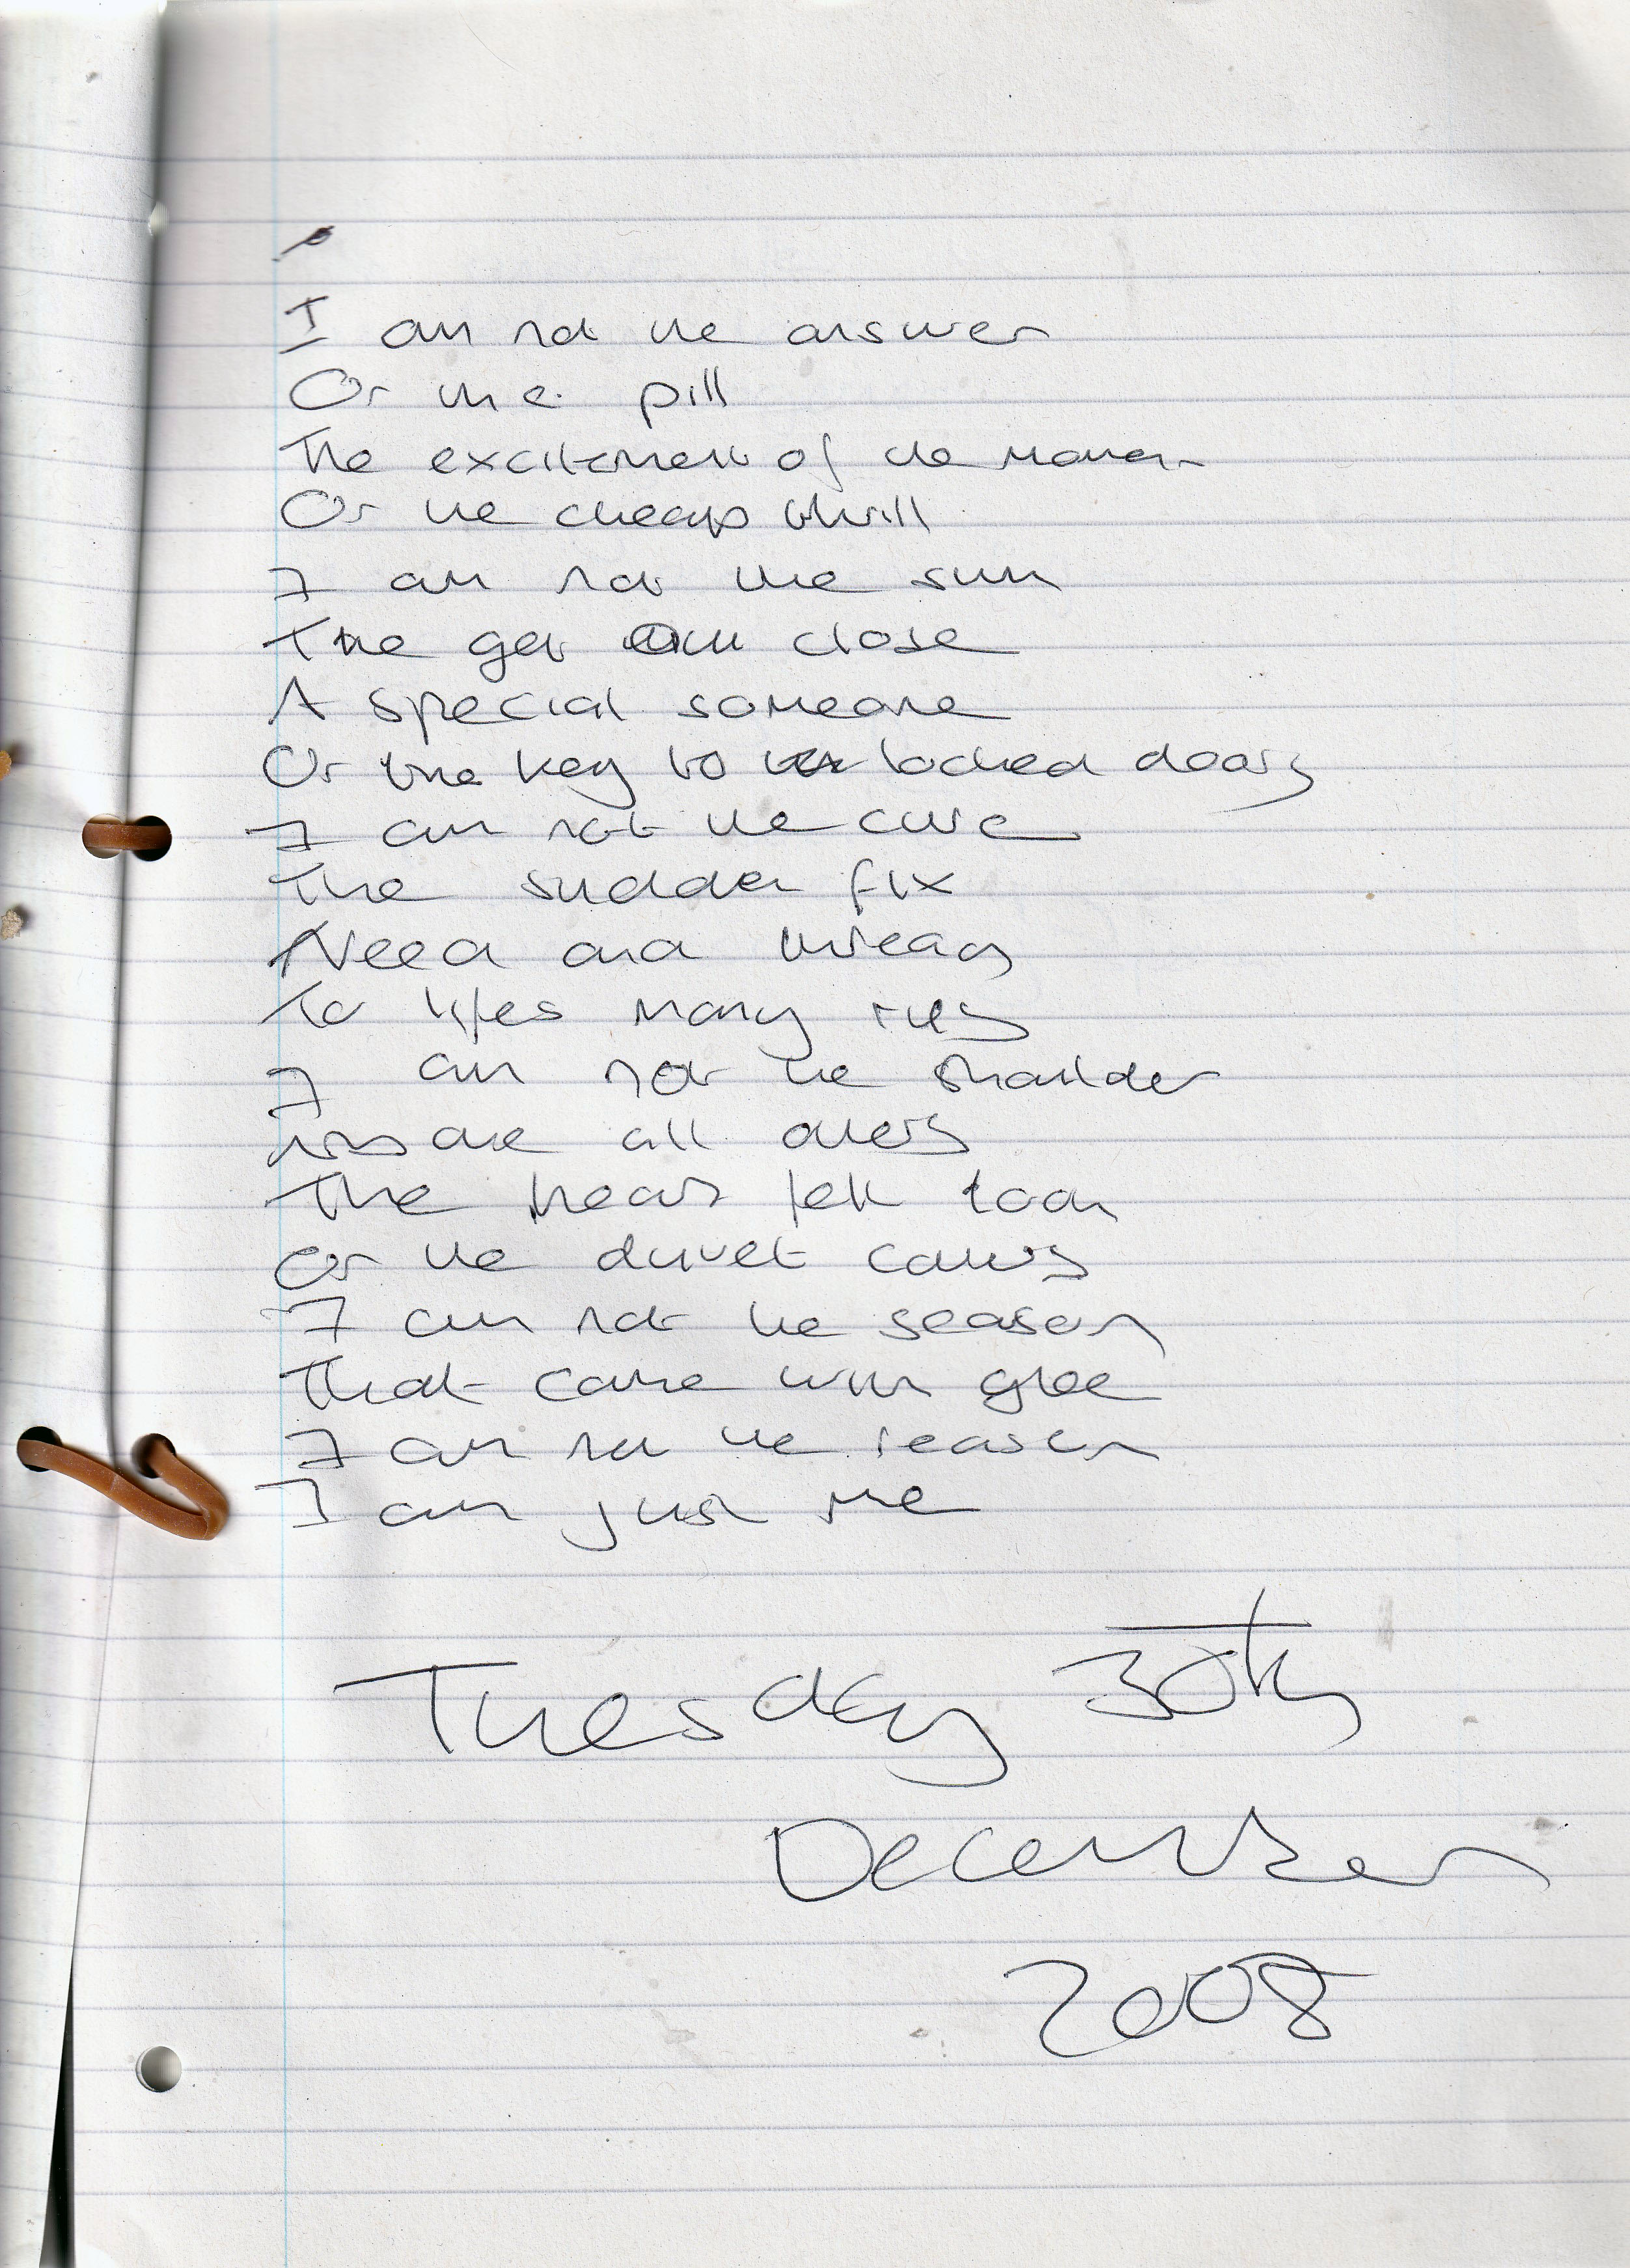 I am not the answer
Or the pill
The excitement of the moment
Or the cheap thrill
I am not the sun
The get out close
A special someone
Or the key to locked doors
I am not the cure
The sudden fix
Need and
To lifes many
I am not the shoulder
above all others
The heart felt
or the duvet covers
I am not the season
That came with glee
I am not the reason
I am just me
Tuesday 30th
December
2008